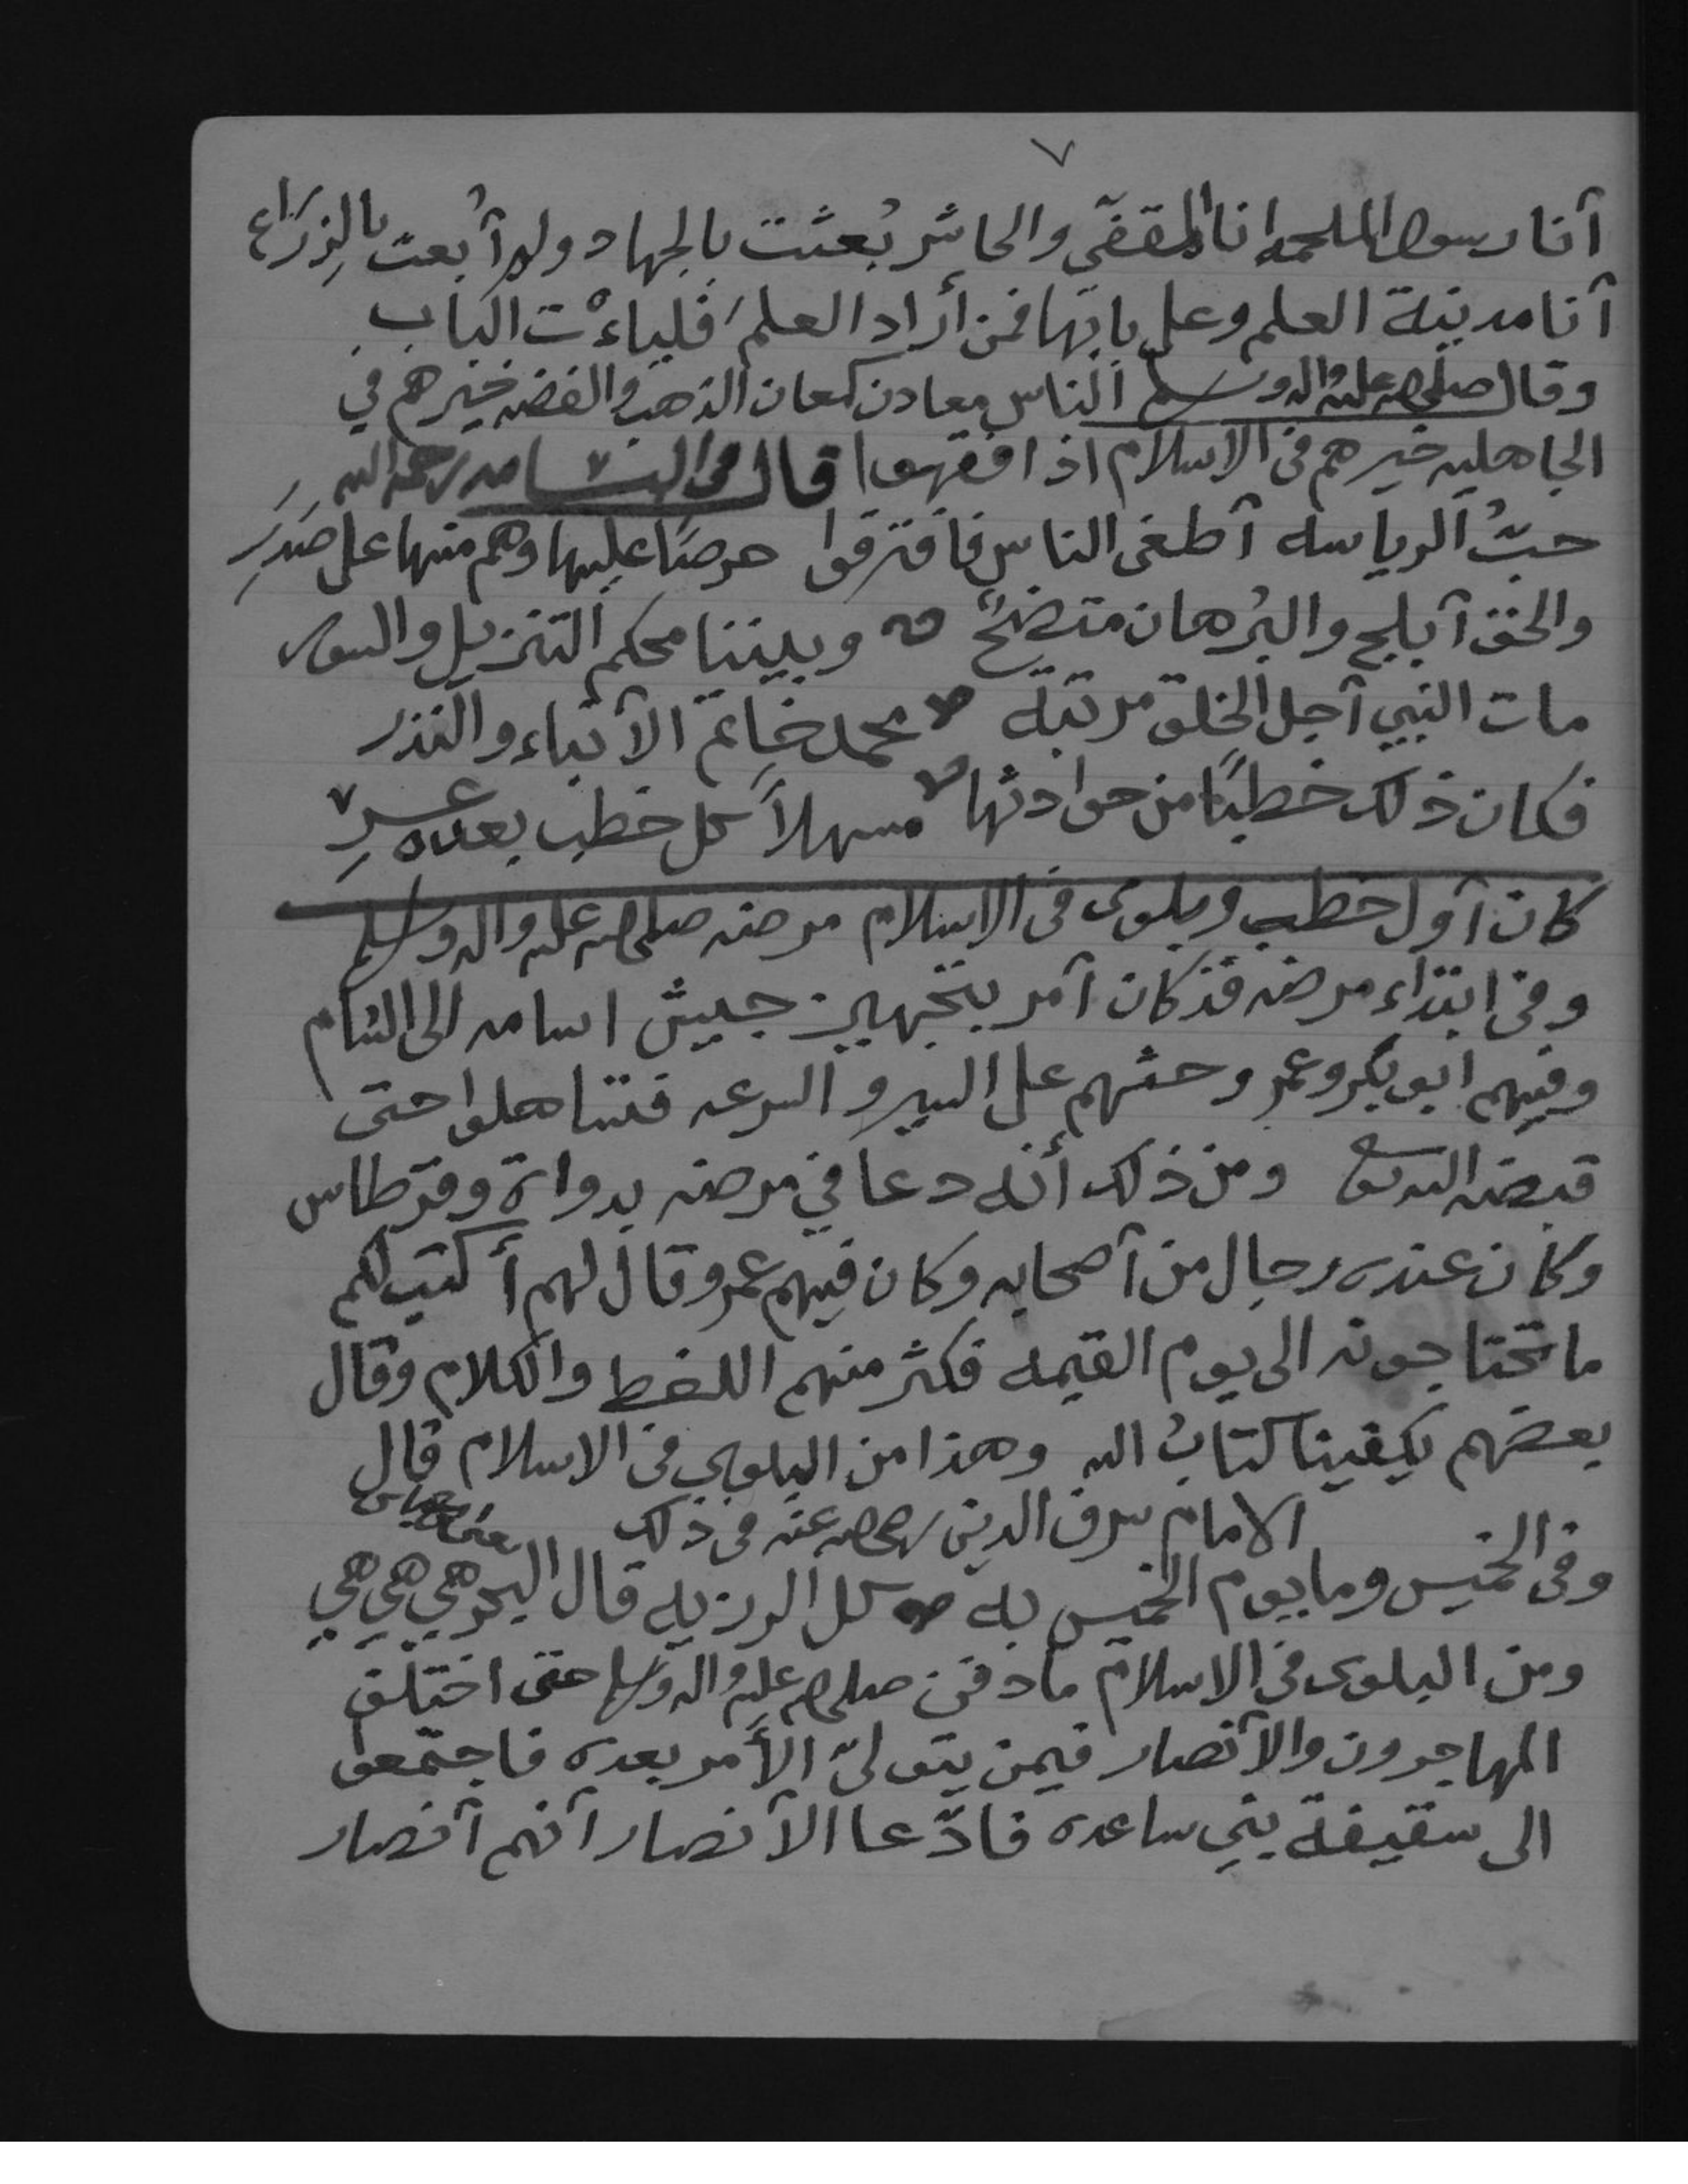 ٧
أنا رسول الملحمه انا المقفّي والحاشر بُعثت بالجهاد ولم أُبعث بالزِرَاع
أنا مدينة العلم وعلي بابها فمن أراد العلم فلياءْت الباب
وقال صلى الله عليه واله وسلم الناس معادن كمعان الذهب والفضه خيرهم في
الجاهليه خيرهم في الاسلام اذا فقهوا قال في البسامه رحمه الله
حبُّ الرياسه أطغى الناس فافترقوا حرصًا عليها وهم منها على صَدَرِ
والحق أبلج والبُرهان متضحٌ وبيننا محكم التنزيل والسور
مات النبي أجل الخلق مرتبة محمد خاتم الأنبياء والنذر
فكان ذلك خطبًا من حوادثها مسهلاً كل خطب بعده عسِرِ
كان أول خطب وبلوى في الاسلام مرضه صلى الله عليه واله وسلم
وفي ابتداء مرضه قد كان أمر بتجهيز جيش اسامه الى الشام
وفيهم ابو بكر وعمر وحثهم على السير والسرعه فتساهلوا حتى
قبضه الله تعالى ومن ذلك أنه دعا في مرضه بدواة وقرطاس
وكان عنده رجال من أصحابه وكان فيهم عمر وقال لهم أكتب لكم
ما تحتاجونه الى يوم القيمه فكثر منهم اللغط والكلام وقال
بعضهم يكفينا كتابُ الله وهذا من البلوى في الاسلام قال
الامام شرف الدين رضي الله عنه في ذلك
وفي الخميس وما يوم الخميس به كل الرزيه قال البحر هي هي هي
ومن البلوى في الاسلام ما دفن صلى الله عليه واله وسلم حتى اختلف
المهاجرون والأنصار فيمن يتولىّ الأمر بعده فاجتمعو
الى سقيفة بني ساعده فادّعا الأنصار أنهم أنصار